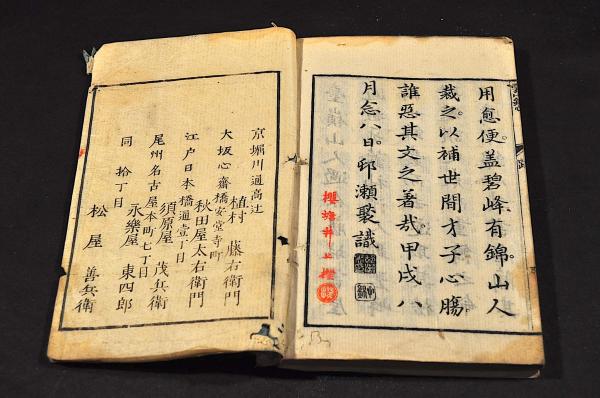 用愈便。盖碧峰有錦。山人
裁之。以補世間才子心膓。
誰惡其文之著哉甲戌八
月念八日。邨瀬褧識
櫻塘井上櫻
京堀川通高辻
植村藤右衛門
大坂心齋橋安堂寺町
秋田屋太右衛門
江戸日本橋通壹丁目
須原屋茂兵衛
尾州名古屋本町七丁目
永樂屋東四郎
同拾丁目
松屋善兵衛